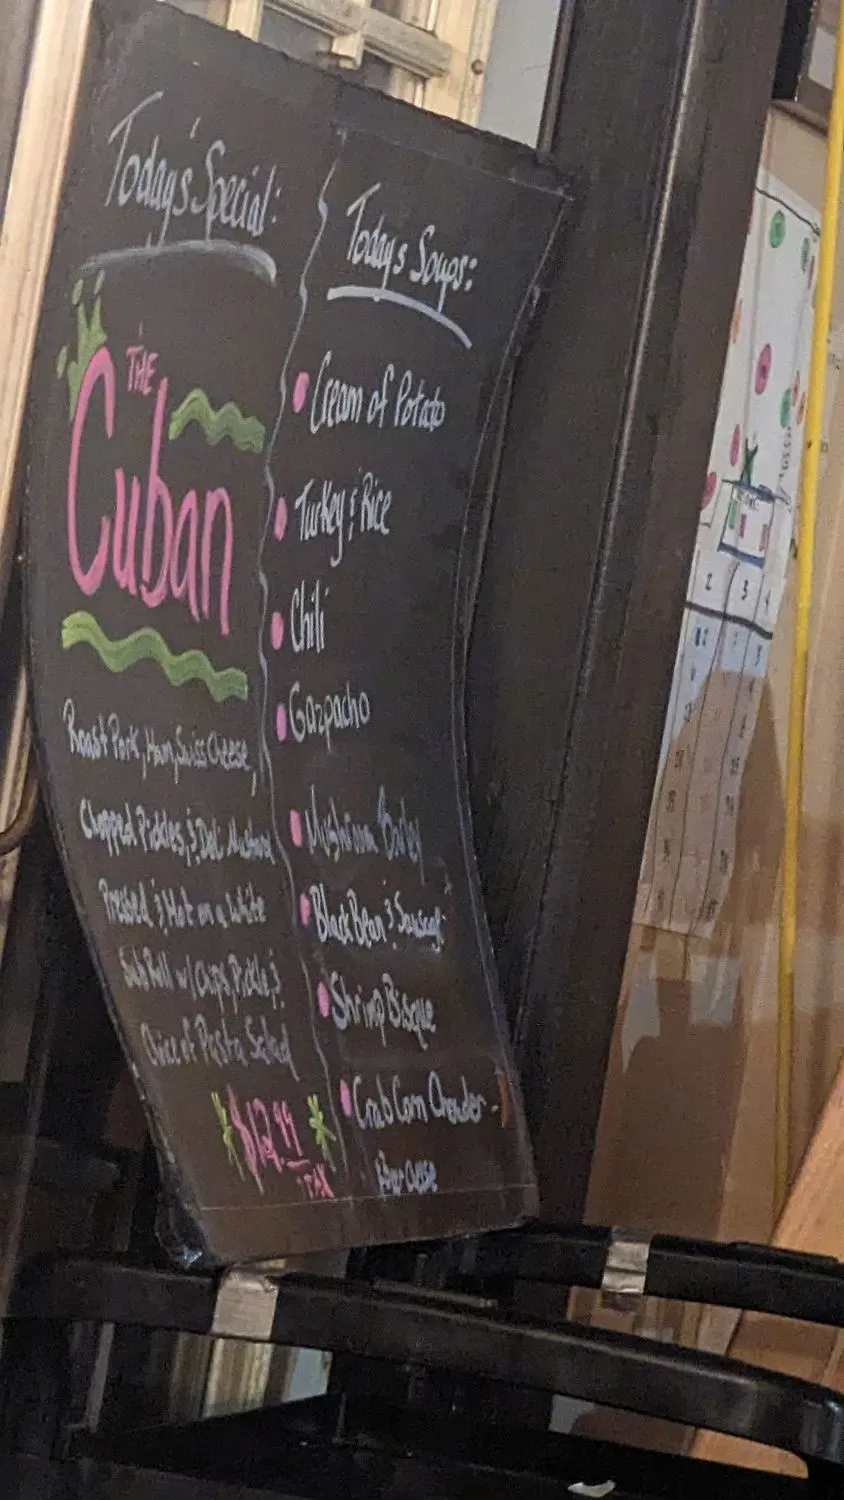 Today's Special:
THE
Cuban
Roast Pork, Ham, Swiss Cheese,
Chopped Pickles, & Deli Mustard
Pressed & Hot on a White
Sub Roll w/ Chips, Pickle, &
Choice of Pasta Salad
$12.99
+TAX
Today's Soups:
Cream of Potato
Turkey & Rice
Chili
Gazpacho
Mushroom Barley
Black Bean & Sausage
Shrimp Bisque
Crab Corn Chowder
2 3 4